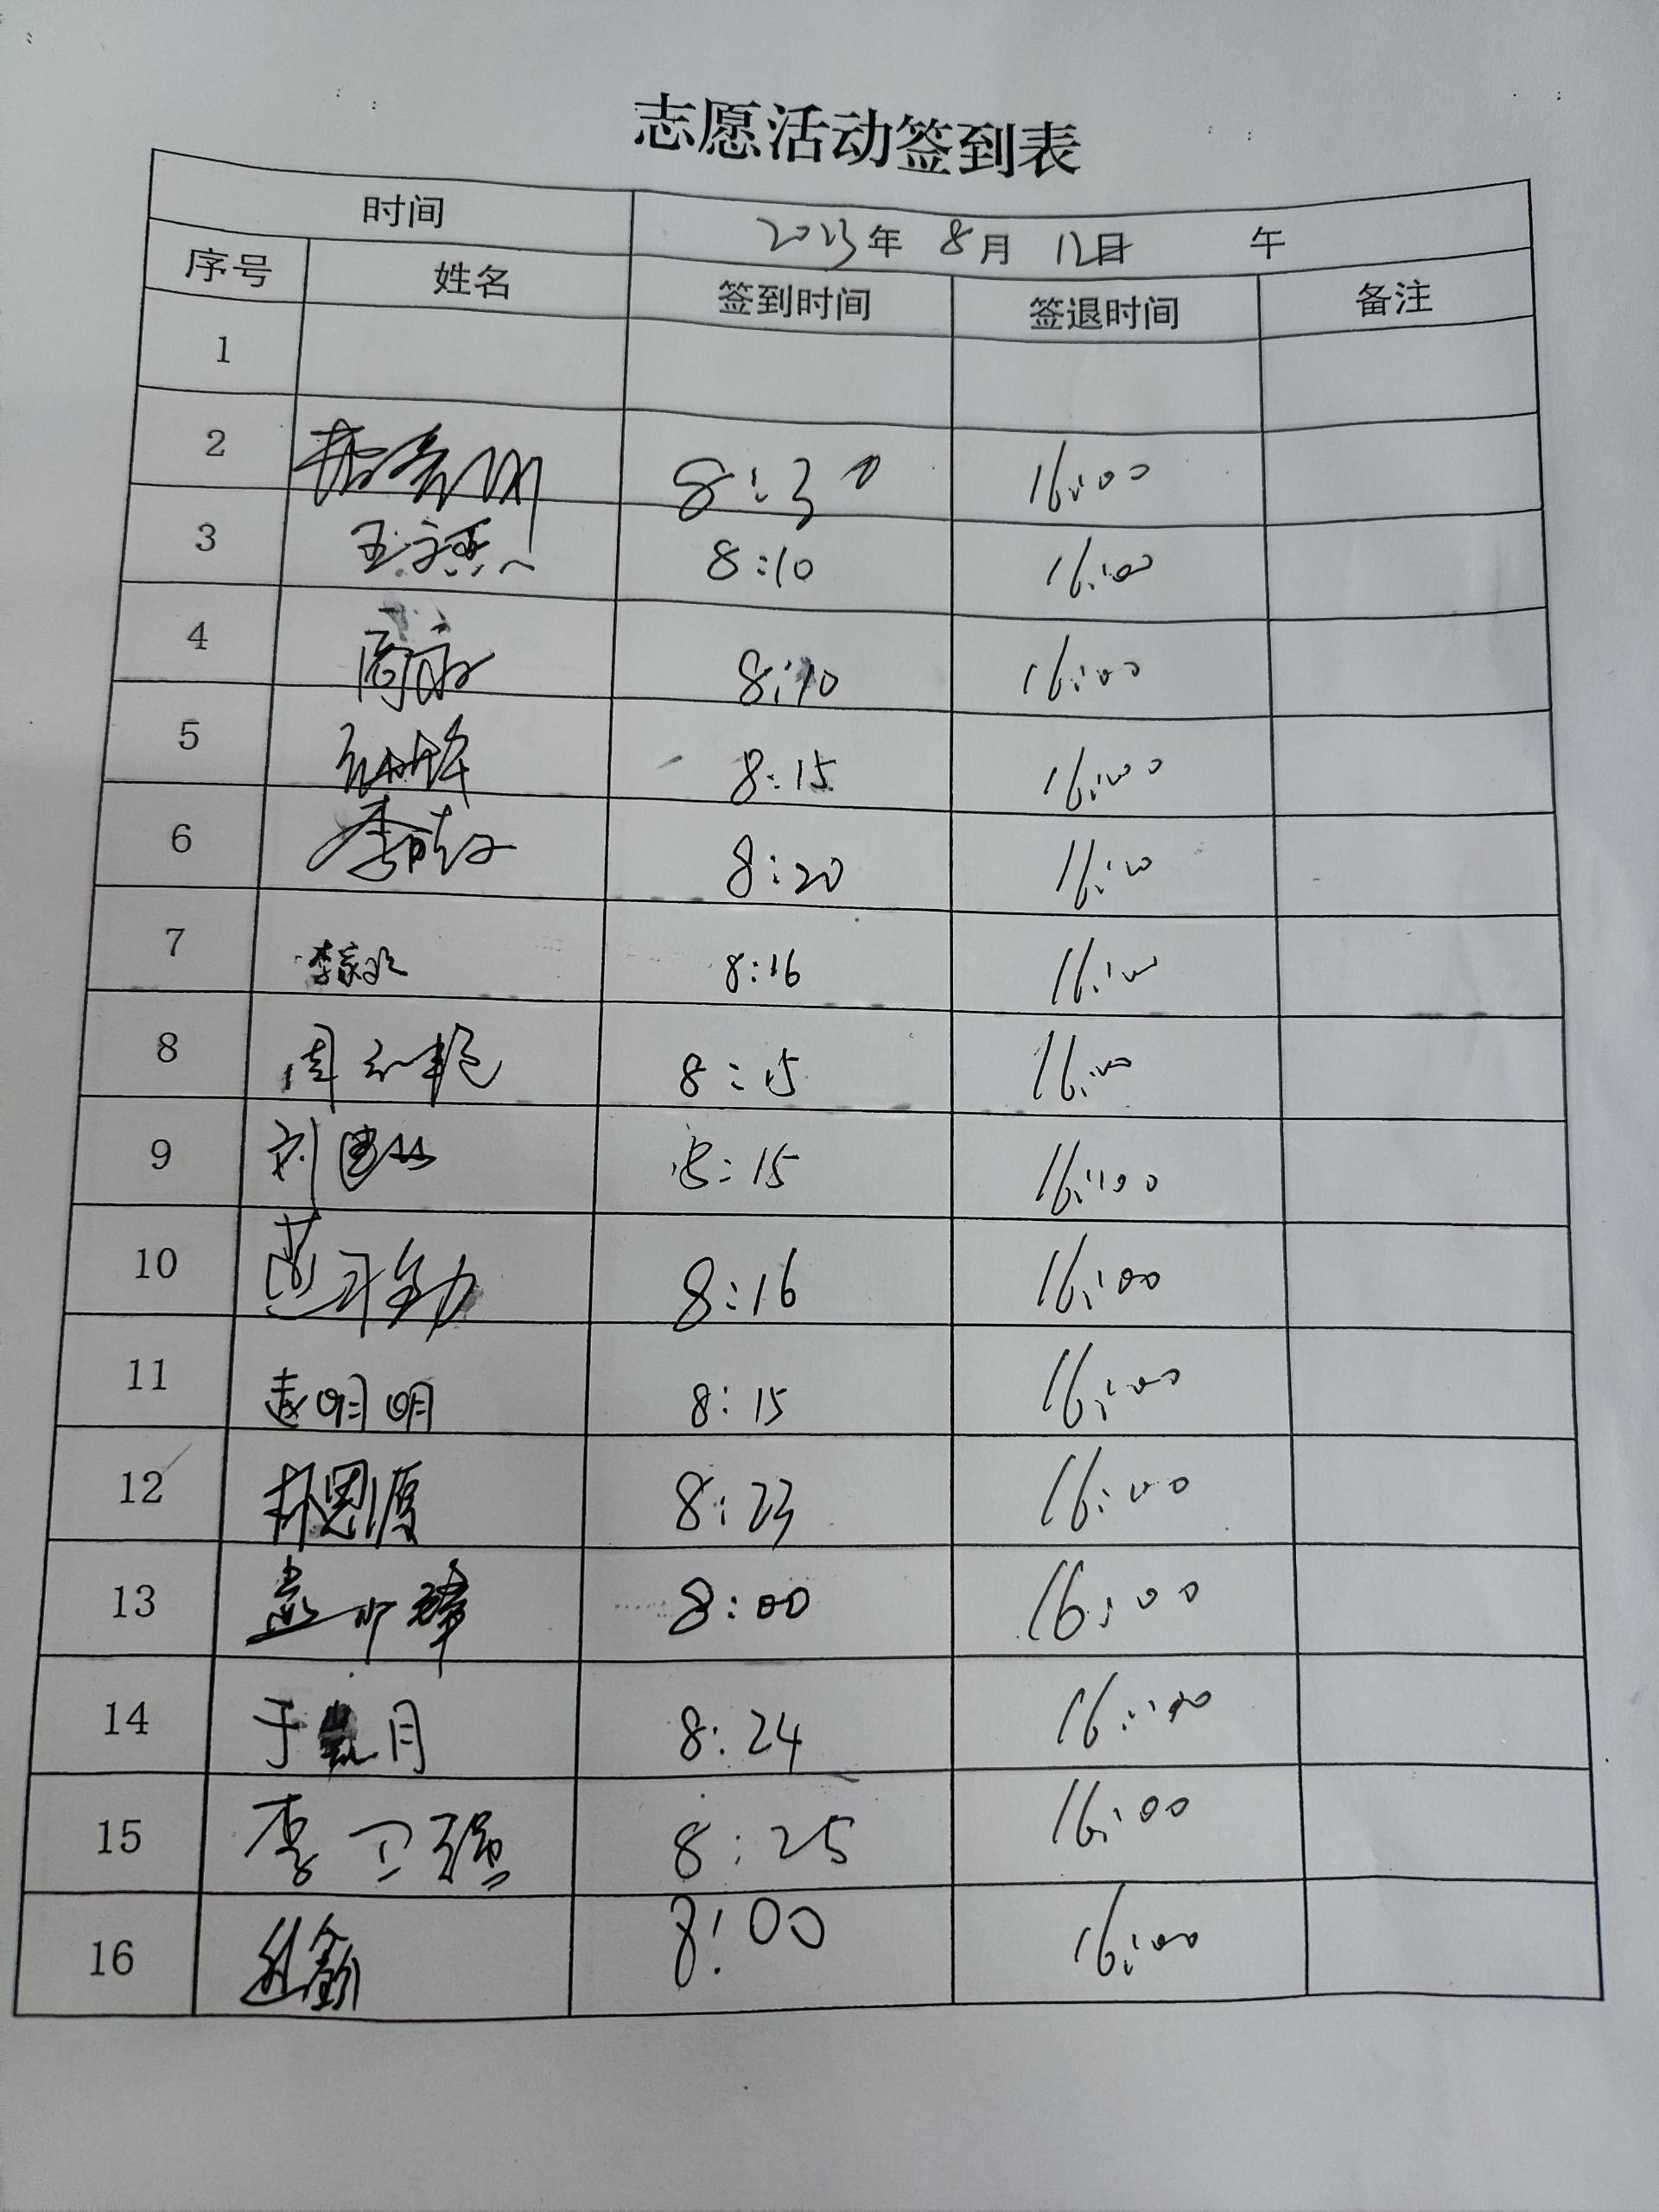 志愿活动签到表
时间 2023年 8月 12日 午
序号 姓名 签到时间 签退时间 备注
1
2 8:30 16:00
3 8:10 16:00
4 8:10 16:00
5 8:15 16:00
6 8:20 16:00
7 8:16 16:00
8 周 8:15 16:00
9 刘 8:15 16:00
10 8:16 16:00
11 赵明明 8:15 16:00
12 林恩源 8:23 16:00
13 8:00 16:00
14 于 月 8:24 16:00
15 李卫强 8:25 16:00
16 8:00 16:00